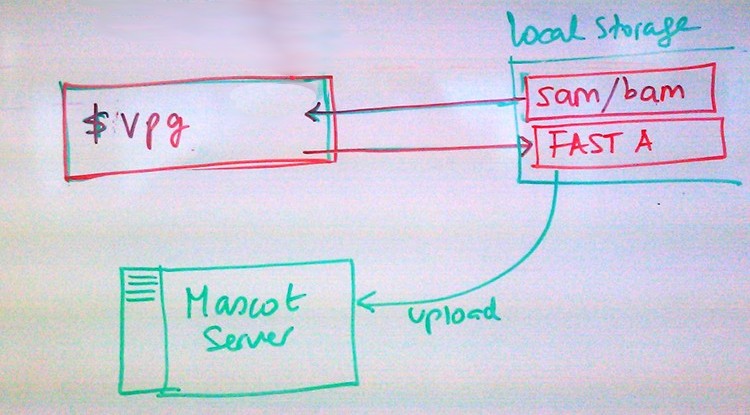 Local Storage
sam/bam
$ vpg
FASTA
Mascot
Server
upload